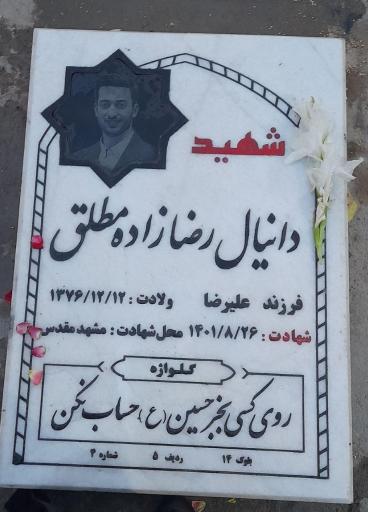 شهید
دانیال رضازاده مطلق
فرزند علیرضا ولادت : ۱۳۷۶/۱۲/۱۲
شهادت : ۱۴۰۱/۸/۲۶ محل شهادت : مشهد مقدس
گلواژه
روی کسی بجز حسین (ع) حساب نکن
بلوک ۱۴ ردیف ۵ شماره ۴